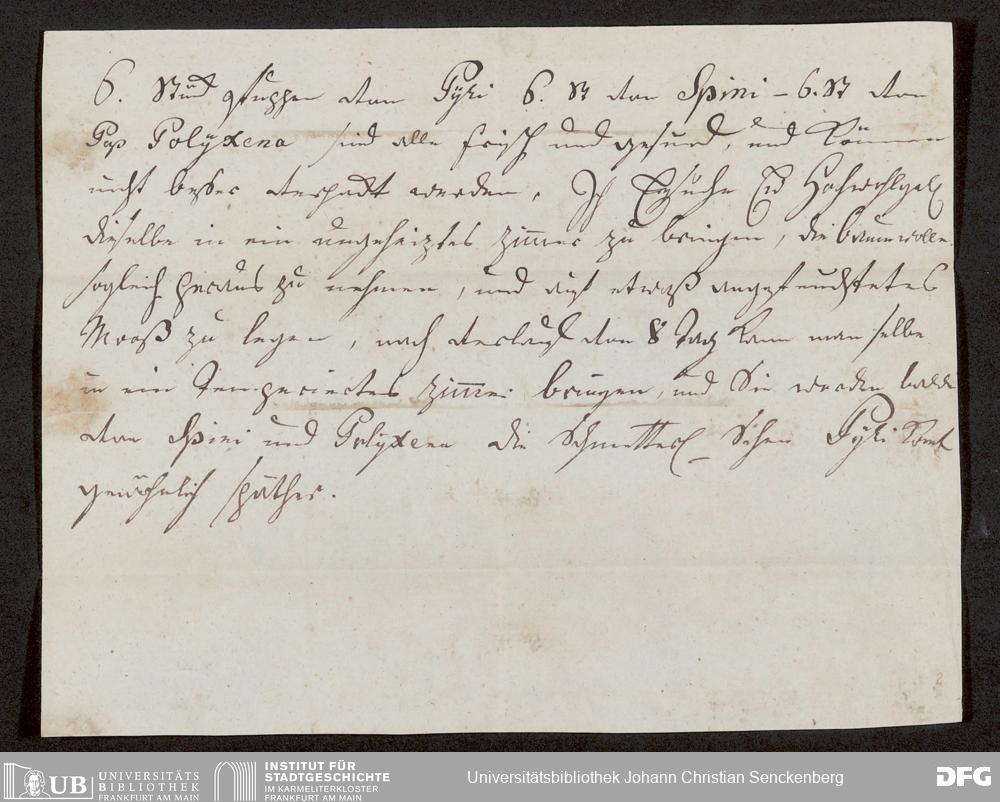 6. Stück Puppen von Pyri 6. St von Spini – 6. St von
Pap Polyxena sind alle frisch und gesund, und können
nicht besser verpackt werden. Ich Ersuche Ew Hochwohlgeb
dieselbe in ein ungeheiztes zimmer zu bringen, die baumwolle
sogleich heraus zu nehmen, und auf etwaß angefeuchtetes
Mooß zu legen, nach verlauf von 8 Tag kann man selbe
in ein Temperiertes zimmer bringen, und Sie werden balde
von Spini und Polyxena die Schmetterl Sehen Pyri komt
gewöhnlich späther.
UB UNIVERSITÄTS
BIBLIOTHEK
FRANKFURT AM MAIN
INSTITUT FÜR
STADTGESCHICHTE
IM KARMELITERKLOSTER
FRANKFURT AM MAIN
Universitätsbibliothek Johann Christian Senckenberg
DFG